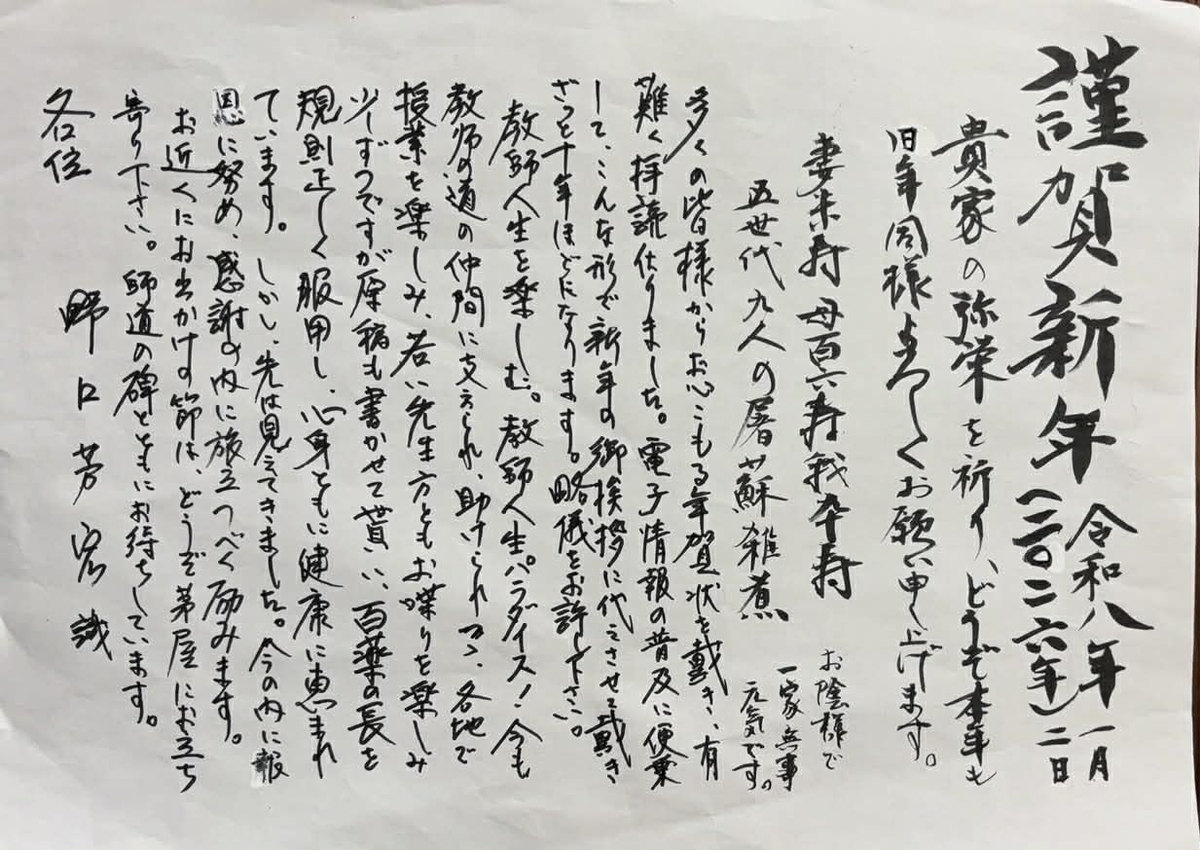 謹賀新年
令和八年
(二〇二六年)
一月
二日
貴家の弥栄を祈り、どうぞ本年も
旧年同様よろしくお願い申し上げます。
妻米寿 母百六寿 我卆寿
五世代九人の屠蘇雑煮
お陰様で
一家無事
元気です。
多くの皆様からお心こもる年賀状を戴き、有
難く拝読仕りました。電子情報の普及に便乗
して、こんな形で新年の御挨拶に代えさせて戴き
ざっと十年ほどになります。略儀をお許し下さい。
教師人生を楽しむ。教師人生パラダイス!今も
教師の道の仲間に支えられ、助けられつつ、各地で
授業を楽しみ、若い先生方ともお喋りを楽しみ
少しずつですが原稿も書かせて貰い、百薬の長を
規則正しく服用し、心身ともに健康に恵まれ
ています。しかし、先は見えてきました。今の内に報
恩に努め、感謝の内に旅立つべく励みます。
お近くにお出かけの節は、どうぞ茅屋にお立ち
寄り下さい。師道の碑とともにお待ちしています。
各位
野口芳宏 誠